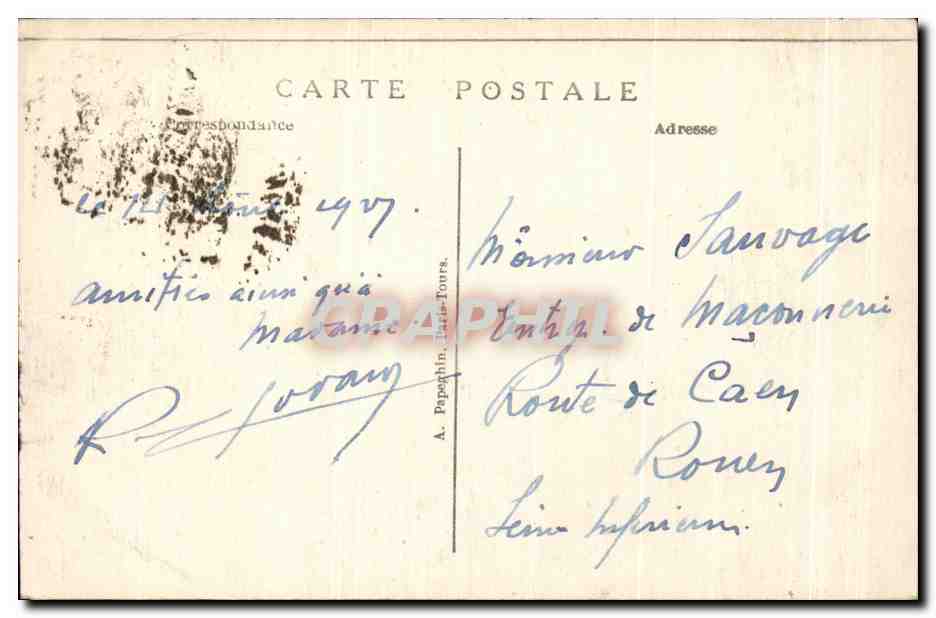 CARTE POSTALE
Correspondance
Adresse
Le 14 Août 1927.
amitiés ainsi qu'à
Madame.
A. Papeghin, Paris-Tours.
Monsieur Sauvage
Entrep. de Maçonnerie
Route de Caen
Rouen
Seine Inférieure.
CPAPHIL